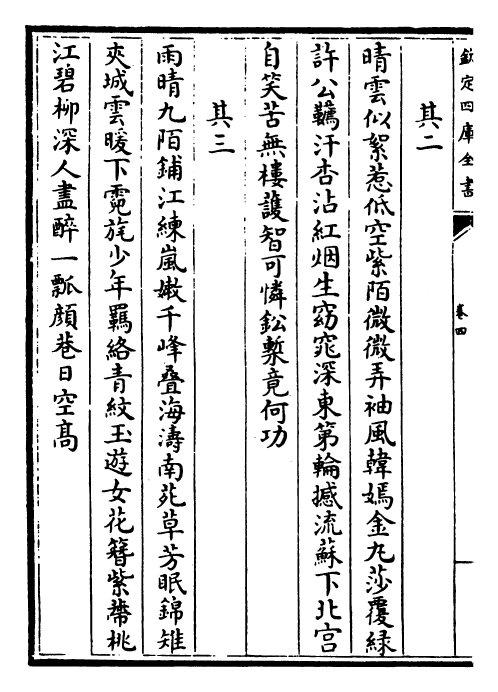 欽定四庫全書
卷四
其二
晴雲似絮惹低空紫陌微微弄袖風韓嫣金丸莎覆緑
許公韉汗杏沾紅烟生窈窕深東第輪撼流蘇下北宫
自笑苦無樓護智可憐鈆槧竟何功
其三
雨晴九陌鋪江練嵐嫩千峰叠海濤南苑草芳眠錦雉
夾城雲暖下霓旄少年羈絡青紋玉遊女花簪紫蔕桃
江碧柳深人盡醉一瓢顔巷日空髙